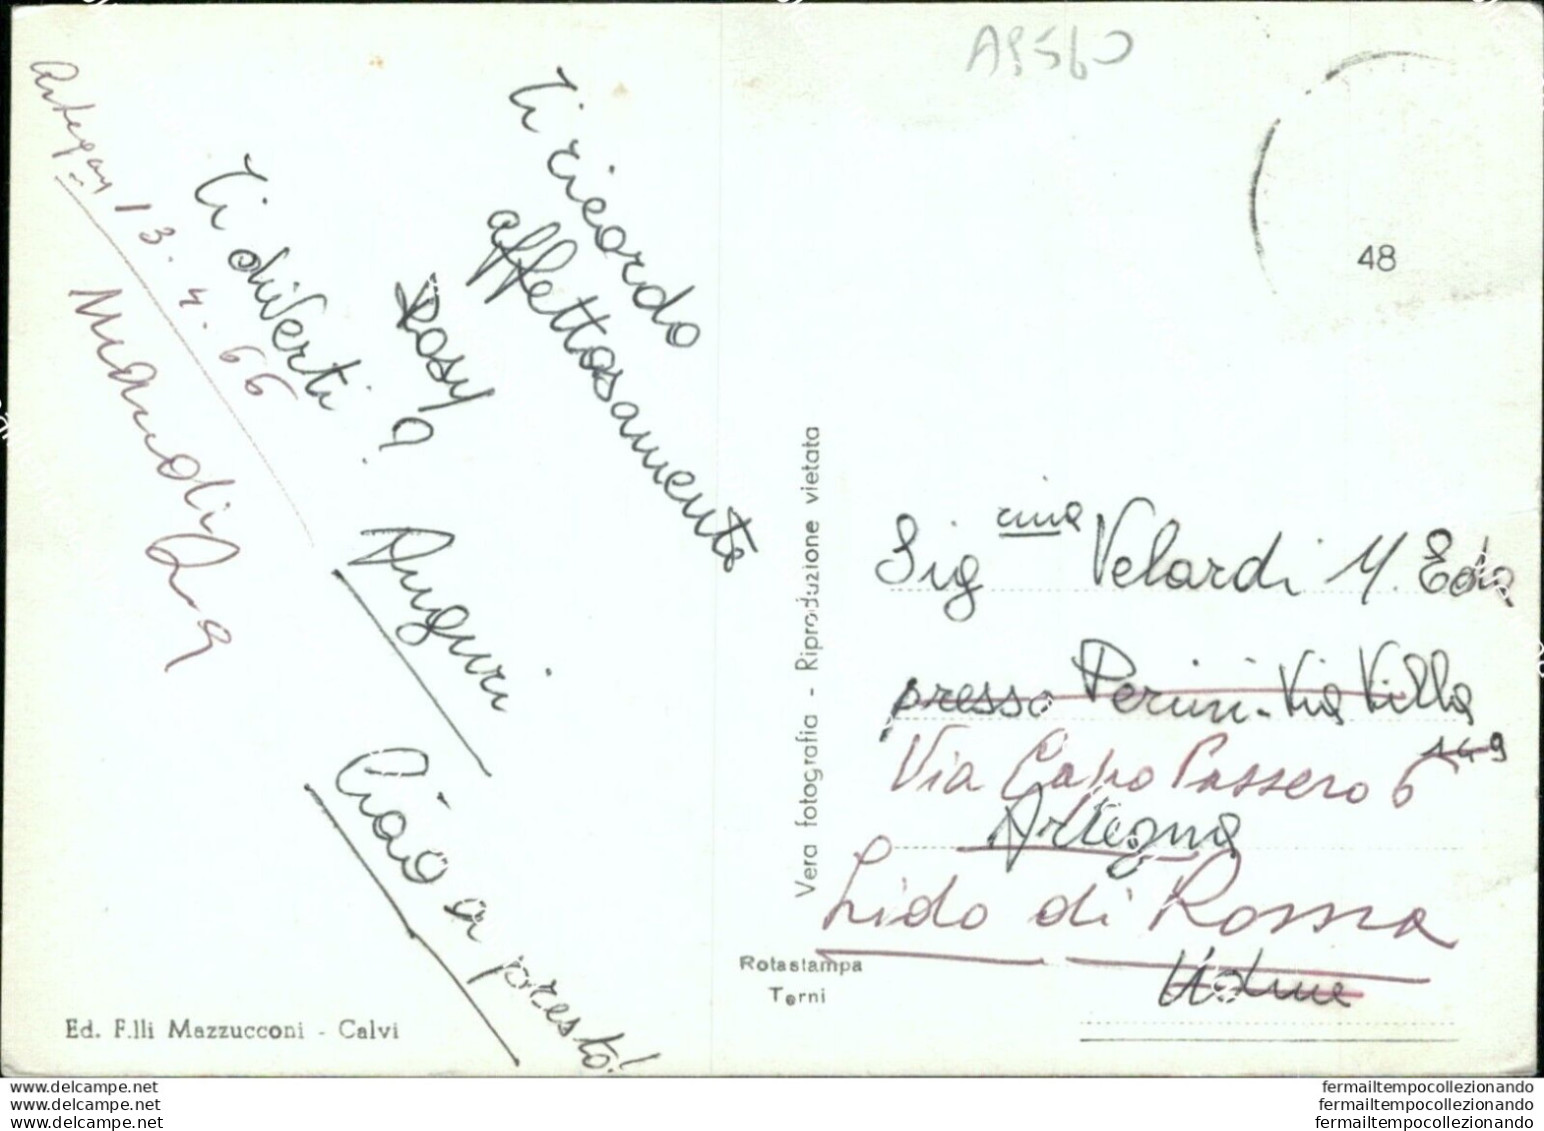 AP560
48
Artegna 13.4.66
Mandi
Ti ricordo
affettosamente
Rosy
Ti diverti?
Auguri
Ciao a presto!
Ed. F.lli Mazzucconi - Calvi
Vera fotografia - Riproduzione vietata
Rotastampa
Terni
Sig.rina Velardi M. Eda
presso Perini - Via Villa
149
Via Capo Passero 6
Artegna
Lido di Roma
Udine
www.delcampe.net
www.delcampe.net
www.delcampe.net
fermailtempocollezionando
fermailtempocollezionando
fermailtempocollezionando